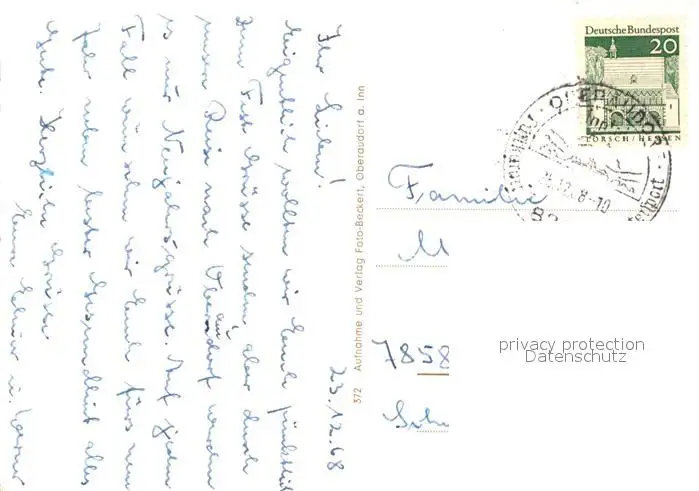 23.12.68
Ihr Lieben!
Eigentlich wollten wir Euch pünktlich
zum Fest Grüsse senden, aber durch
unsere Reise nach Oberaudorf werden
es nur Neujahrsgrüsse. Auf jeden
Fall wünschen wir Euch fürs neue
Jahr neben bester Gesundheit alles
Gute. Herzliche Grüsse
Eure
372 Aufnahme und Verlag Foto-Beckert, Oberaudorf a. Inn
Deutsche Bundespost
20
LORSCH/HESSEN
OBERAUDORF
Familie
M
7858
privacy protection
Datenschutz